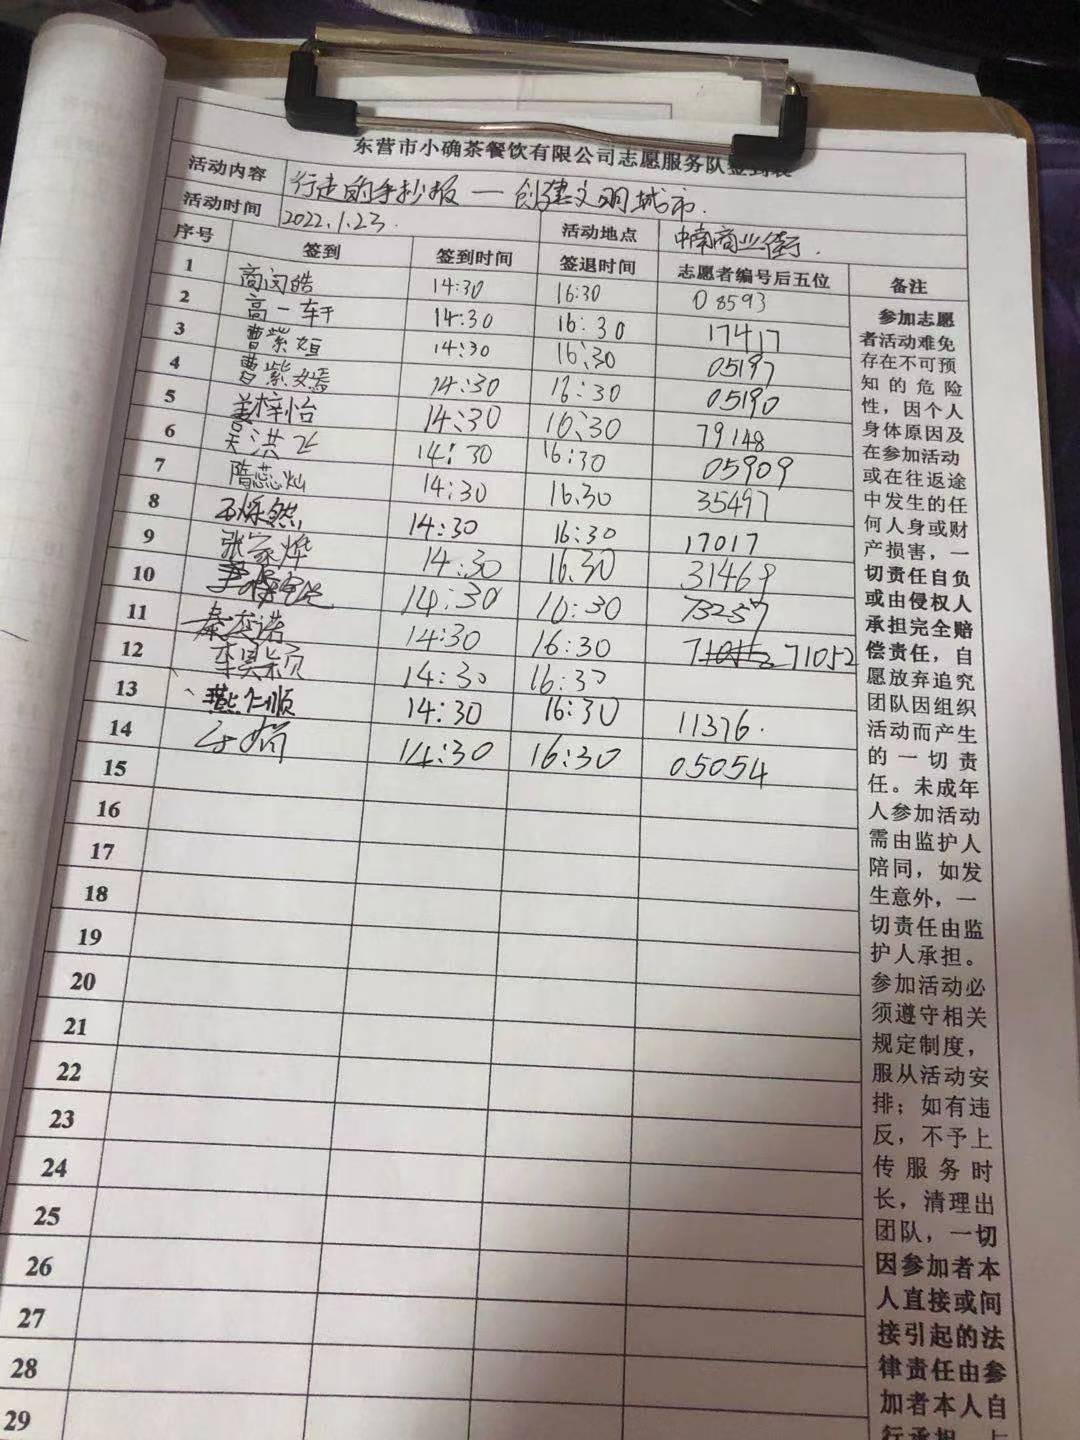 东营市小确茶餐饮有限公司志愿服务队签到表
活动内容 行走的手抄报—创建文明城市.
活动时间 2022.1.23. 活动地点 中南商业街.
序号 签到 签到时间 签退时间 志愿者编号后五位 备注
1 商闵皓 14:30 16:30 08593
2 高一轩 14:30 16:30 17417
3 曹紫姮 14:30 16:30 05197
4 曹紫嫣 14:30 16:30 05190
5 姜梓怡 14:30 16:30 79148
6 吴洪飞 14:30 16:30 05909
7 隋蕊灿 14:30 16.30 35497
8 石烁然 14:30 16:30 17017
9 张家烨 14:30 16.30 31469
10 14:30 16:30 73257
11 秦奕诺 14:30 16:30 71052
12 14:30 16:30
13 燕仁顺 14:30 16:30 11376.
14 14:30 16:30 05054
15
16
17
18
19
20
21
22
23
24
25
26
27
28
29
参加志愿
者活动难免
存在不可预
知的危险
性，因个人
身体原因及
在参加活动
或在往返途
中发生的任
何人身或财
产损害，一
切责任自负
或由侵权人
承担完全赔
偿责任，自
愿放弃追究
团队因组织
活动而产生
的一切责
任。未成年
人参加活动
需由监护人
陪同，如发
生意外，一
切责任由监
护人承担。
参加活动必
须遵守相关
规定制度，
服从活动安
排；如有违
反，不予上
传服务时
长，清理出
团队，一切
因参加者本
人直接或间
接引起的法
律责任由参
加者本人自
行承担